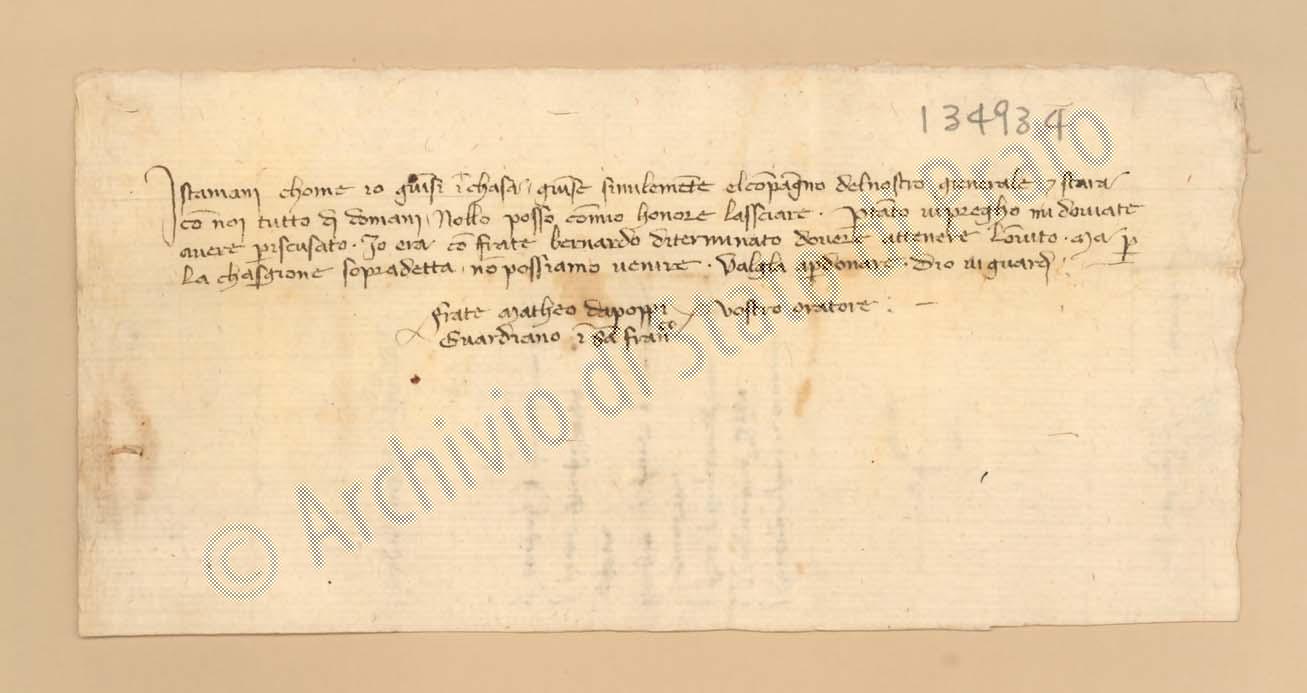 134934
Istamani chome io giu(n)si i(n) chasa, giu(n)se simileme(n)te el co(m)pagno del nostro generale e stara
co(n) noi tutto dì domani, Nollo posso co(n) mio honore lassciare. P(er)ta(n)to vi pregho mi doviate
avere p(er) iscusato. Io era co(n) frate bernardo diterminato dovere attenere lo (n)vito. Ma p(er)
la chasgione sopradetta no(n) possiamo venire. Dio vi guardi
frate Matheo da poppi vostro oratore
Guardiano i(n) Sa(n) fran(cesco)
© Archivio di Stato di Prato